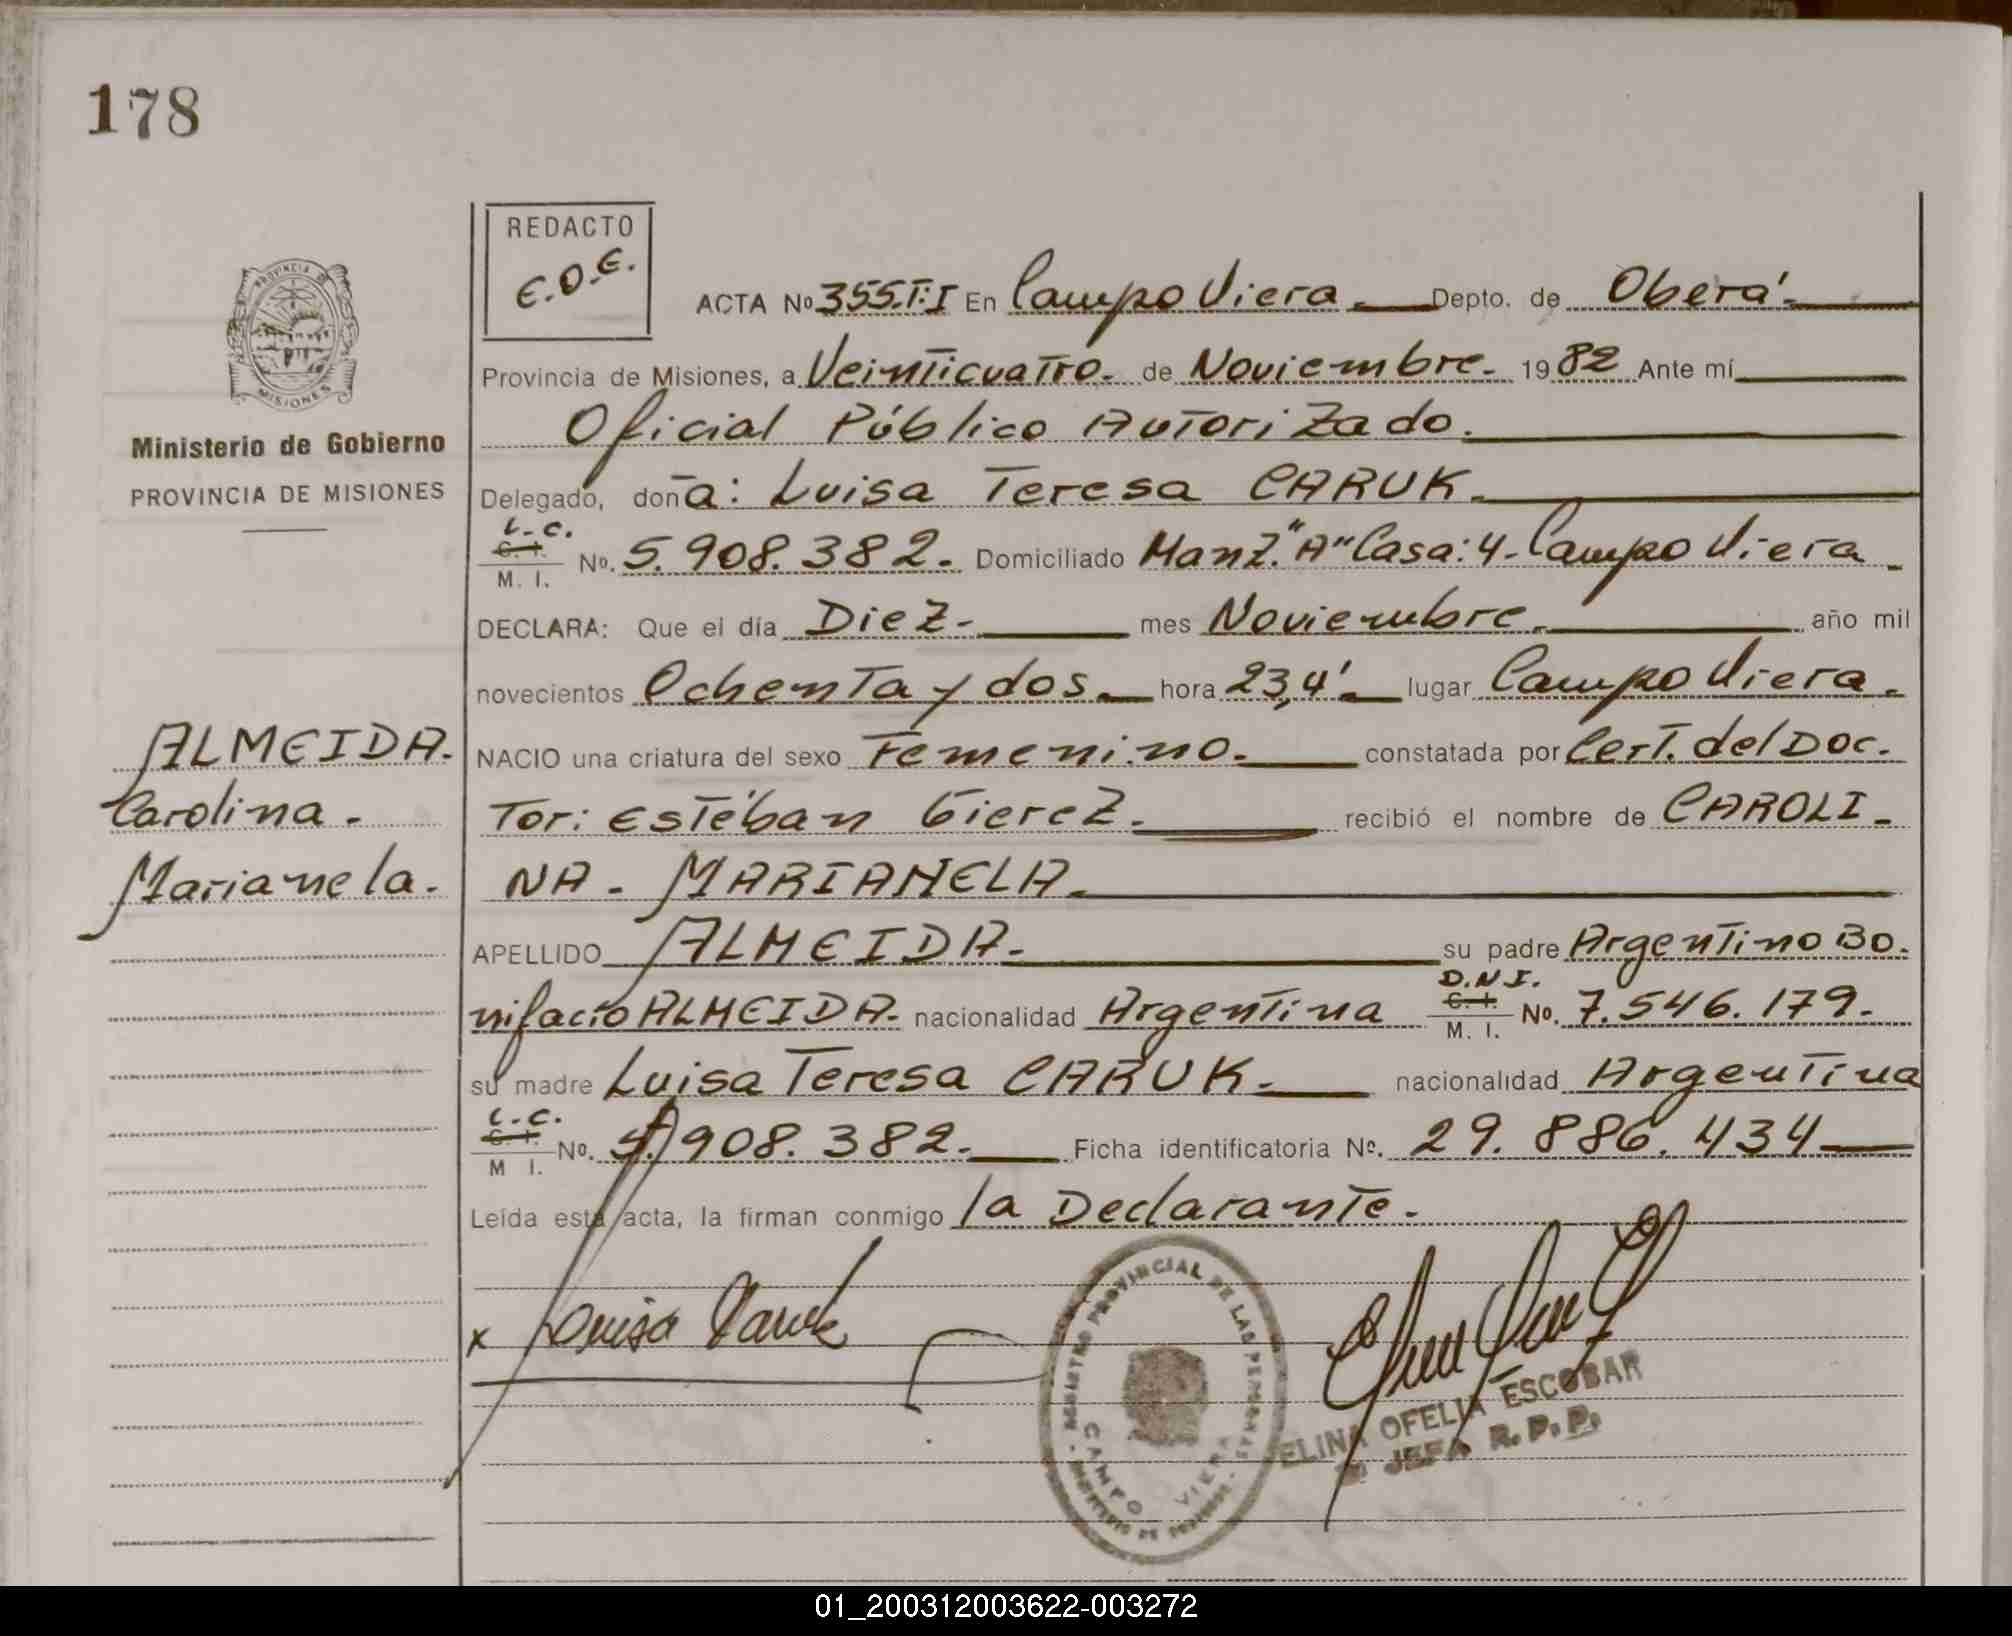 178
REDACTO
E.O.E.
ACTA Nº 355.T:I En Campo Viera.- Depto. de Oberá.-
Provincia de Misiones, a Veinticuatro. de Noviembre. 1982 Ante mí
Oficial Público Autorizado.
Delegado, doña: Luisa Teresa CARUK.
L.C.
C. I.
M. I. Nº. 5.908.382. Domiciliado Manz."A" Casa:4-Campo Viera.
DECLARA: Que el día Diez.- mes Noviembre. año mil
novecientos Ochenta y dos. hora 23,4' lugar Campo Viera.
NACIO una criatura del sexo Femenino. constatada por Cert. del Doc.
Tor: Estéban Gierez. recibió el nombre de CAROLI-
NA - MARIANELA.
APELLIDO ALMEIDA. su padre Argentino Bo.
nifacio ALMEIDA. nacionalidad Argentina
D.N.I.
C. I.
M. I. Nº. 7.546.179.
su madre Luisa Teresa CARUK. nacionalidad Argentina
L.C.
C. I.
M I. Nº. 5.908.382. Ficha identificatoria Nº. 29.886.434
Leída esta acta, la firman conmigo la Declarante.
x Luisa Caruk
ELINA OFELIA ESCOBAR
JEFA R.P.P.
REGISTRO PROVINCIAL DE LAS PERSONAS
CAMPO VIERA
MINISTERIO DE GOBIERNO
PROVINCIA DE
MISIONES
Ministerio de Gobierno
PROVINCIA DE MISIONES
ALMEIDA.
Carolina.
Marianela.
01_200312003622-003272